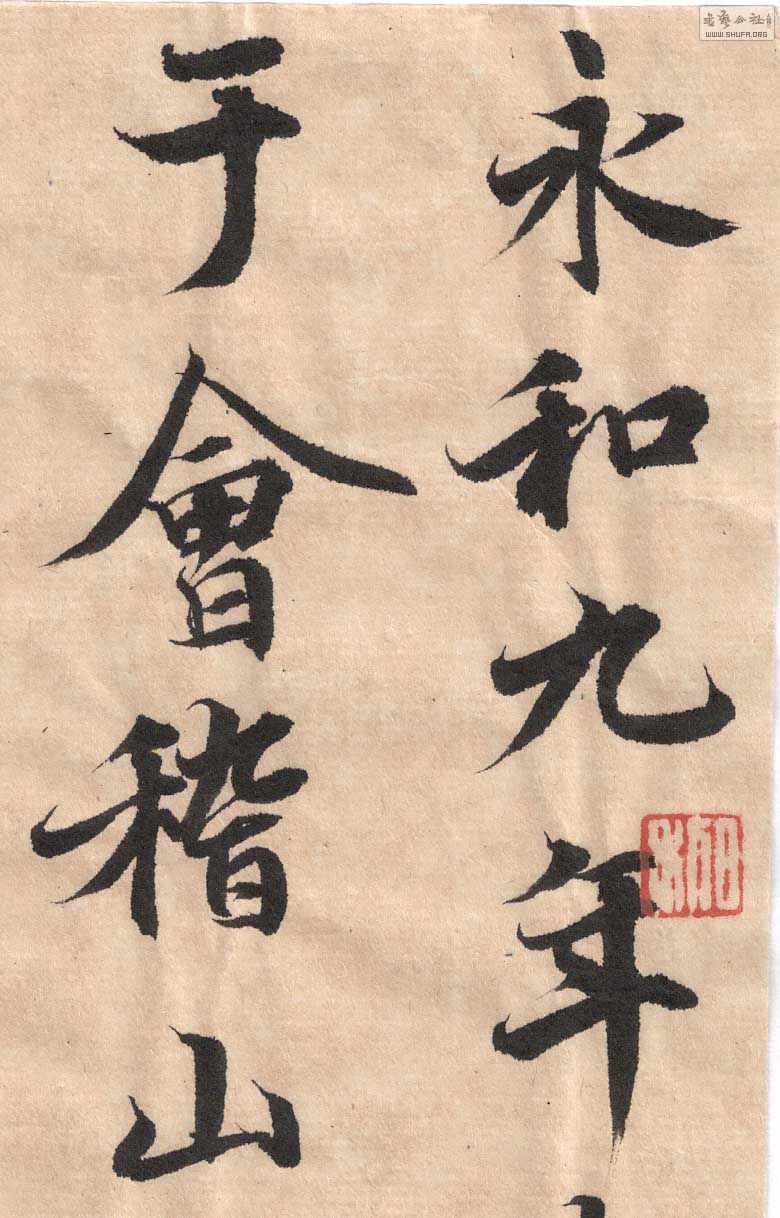 永和九年
于會稽山
书艺公社
WWW.SHUFA.ORG